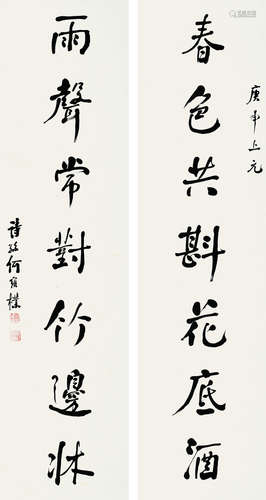 庚午上元
春色共斟花底酒
雨聲常對竹邊牀
詩孫何維樸